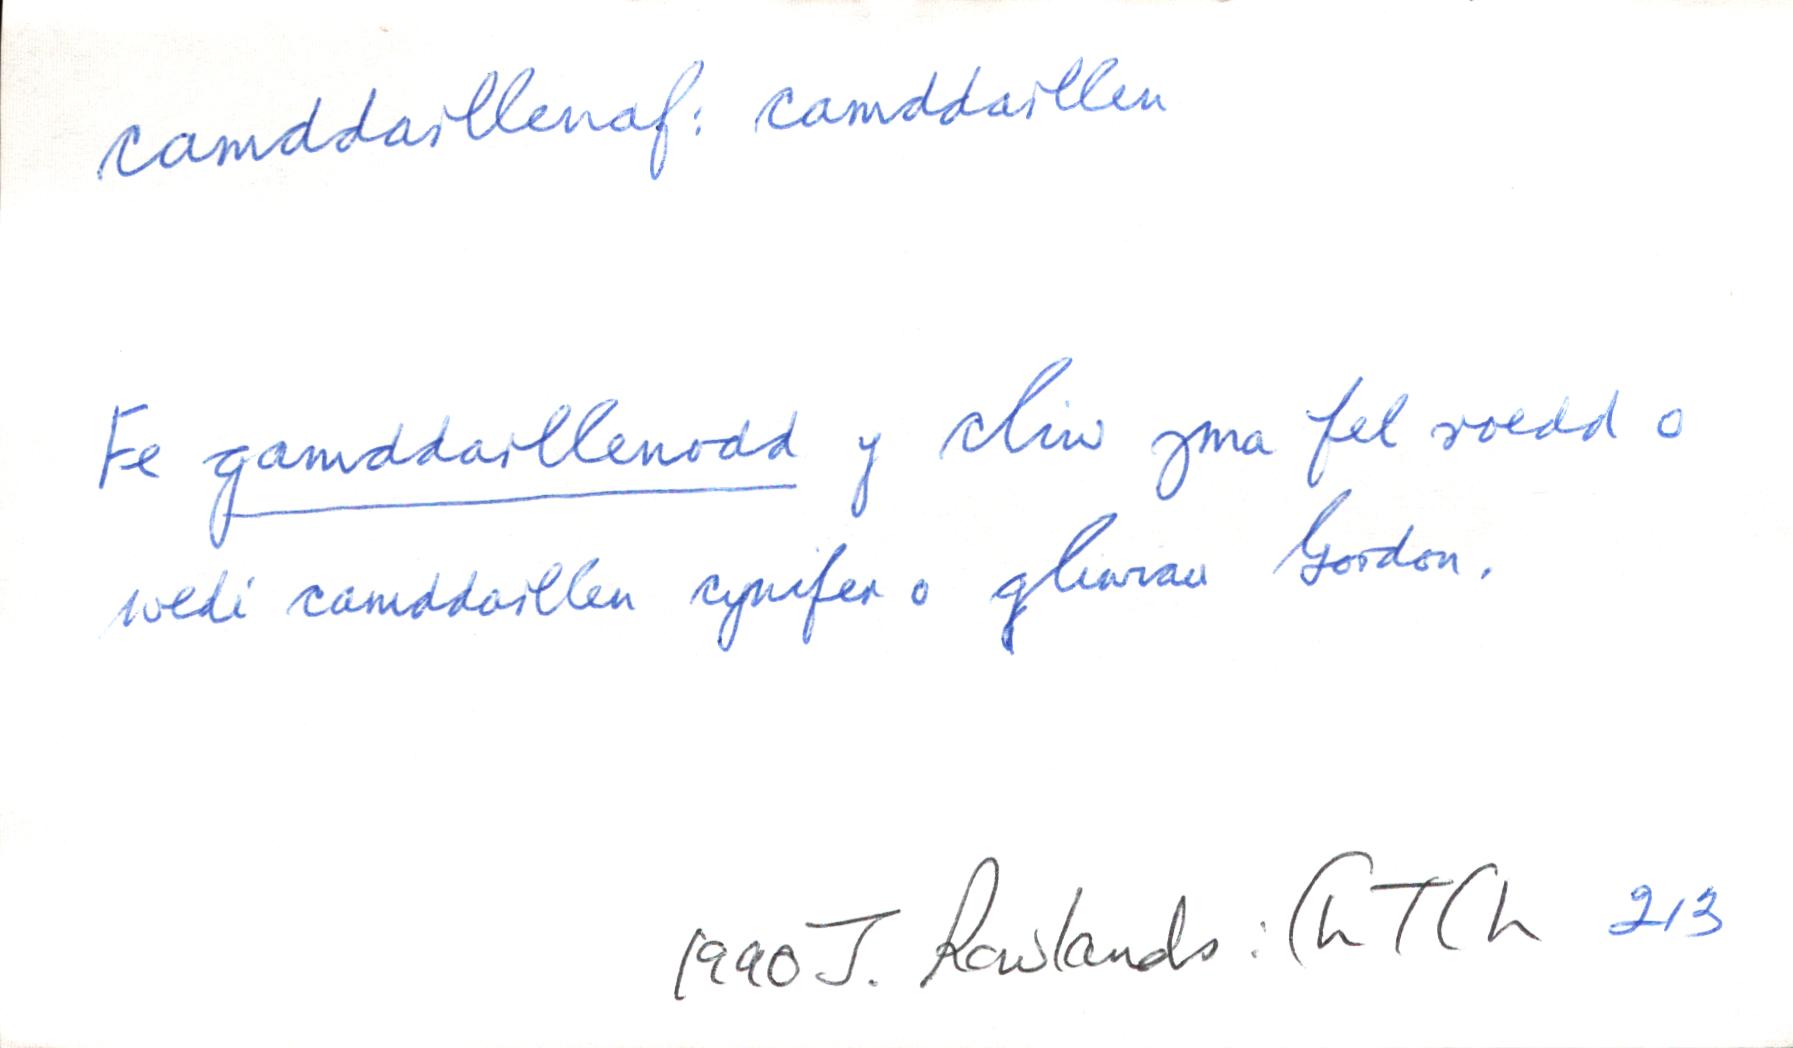 camddarllenaf: camddarllen
Fe gamddarllenodd y cliw yma fel roedd o
wedi camddarllen cynifer o gliwiau Gordon.
1990 J. Rowlands : ChTCh 213